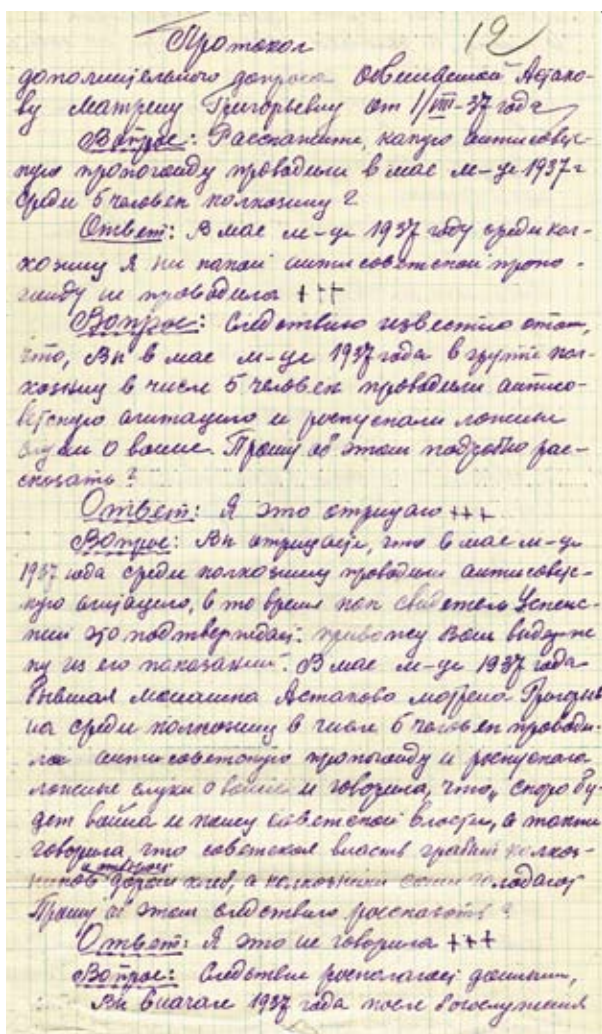 12
Протокол
дополнительного допроса обвиняемой Астахо-
ву Матрену Григорьевну от 1/VIII-37 года
Вопрос: Расскажите, какую антисовет-
ную пропоганду проводили в мае м-це 1937 г
среди 5 человек колхозниц?
Ответ: В мае м-це 1937 году среди кол-
хозниц я ни какой антисоветской пропо-
ганду не проводила +++
Вопрос: Следствию известно отом,
что, Вы в мае м-це 1937 года в группе кол-
хозниц в числе 5 человек проводили антисо-
ветскую агитацию и роспускали ложные
слухи о войне. Прошу об этом подробно рас-
сказать?
Ответ: Я это отрицаю +++
Вопрос: Вы отрицаете, что в мае м-це
1937 года среди колхозниц проводили антисовет-
скую агитацию, в то время как свидетель Успенс-
кий это подтверждает. привожу Вам выдерж-
ку из его показаний. В мае м-це 1937 года
бывшая монашка Астахова Матрена Григорьев-
на среди колхозниц в числе 5 человек проводи-
ла антисоветскую пропоганду и роспускала
ложные слухи о войне и говорила, что, скоро бу-
дет война и конец советской власти, а также
говорила, что советская власть грабит колхоз-
ников хлеб, а колхозники сами голодают
Прошу об этом следствию росказать?
Ответ: Я это не говорила +++
Вопрос: Следствие росполагает данными,
Вы вначале 1937 года после богослужения